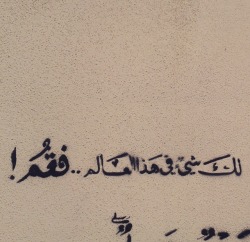 لك شيء في هذا العالم .. فقُم !